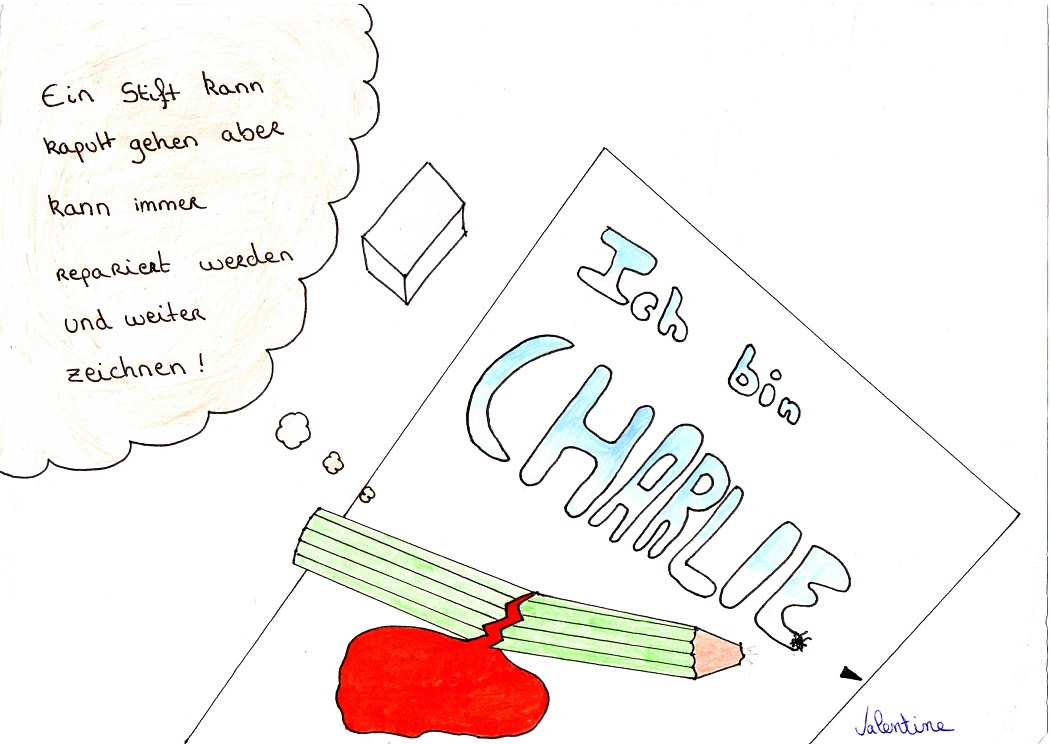 Ein Stift kann
kaputt gehen aber
kann immer
repariert werden
und weiter
zeichnen !
Ich bin
CHARLIE
Valentine